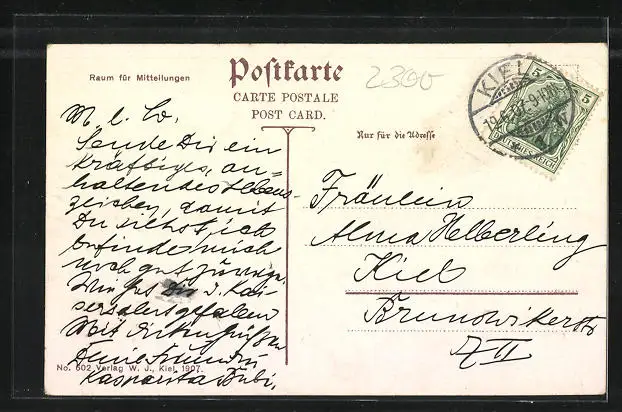 Raum für Mitteilungen
Postkarte
CARTE POSTALE
POST CARD.
Nur für die Adresse
2300
KIEL
5 5
DEUTSCHES REICH
M. l. W.
Sende Dir ein
kräftiges, an-
haltendes Lebens-
zeichen, damit
Du siehst, ich
befinde mich
noch gut
Wie hat Dir d. Kai-
sersalut gefallen
Mit Grüßen
Deine Freundin
Bubi,
Fräulein
Alma Helberling
Kiel
Brunswikerstr
No. 602 Verlag W. J., Kiel, 1907.